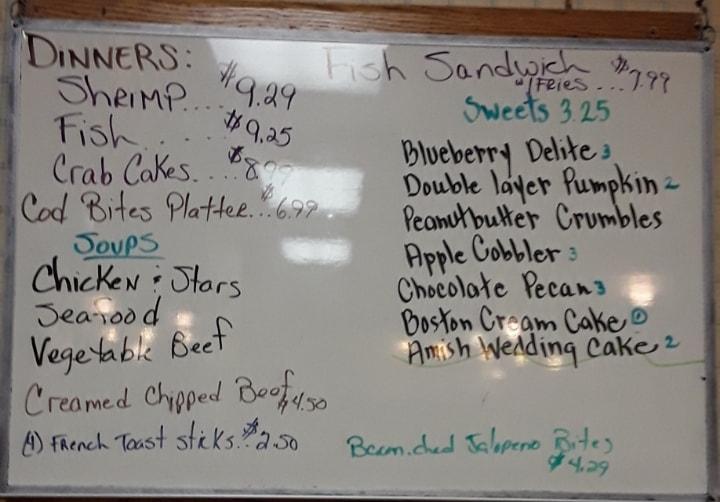 DINNERS:
Shrimp.... $9.29
Fish...... $9.25
Crab Cakes.... $8.99
Cod Bites Platter...$6.99
Soups
Chicken & Stars
Seafood
Vegetable Beef
Creamed Chipped Beef $4.50
(4) French Toast Sticks..$2.50
Fish Sandwich
w/Fries ...$7.99
Sweets 3.25
Blueberry Delite 3
Double layer Pumpkin 2
Peanutbutter Crumbles
Apple Cobbler 3
Chocolate Pecan 3
Boston Cream Cake 1
Amish Wedding Cake 2
Jalapeno Bites
$4.29